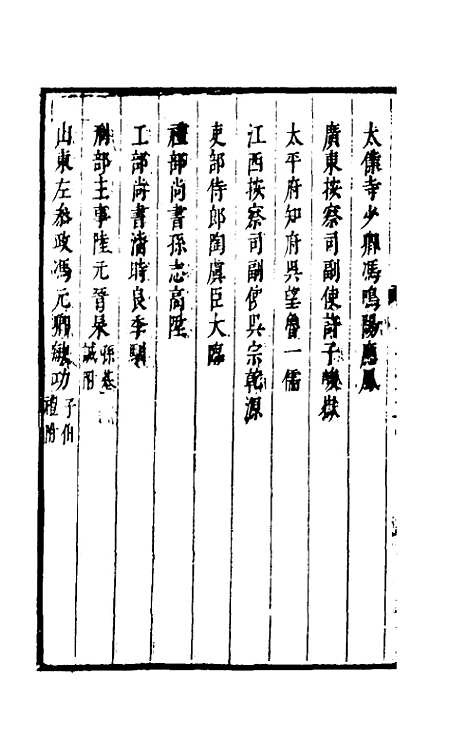 太僕寺少卿馮鳴陽應鳳
廣東按察司副使許子峻嶽
太平府知府吳望魯一儒
江西按察司副使吳宗乾源
吏部侍郎陶虞臣大臨
禮部尚書孫志高陞
工部尚書潘時良季馴
刑部主事陸元晉杲 孫基誠附
山東左參政馮元卿敏功 子伯禮附